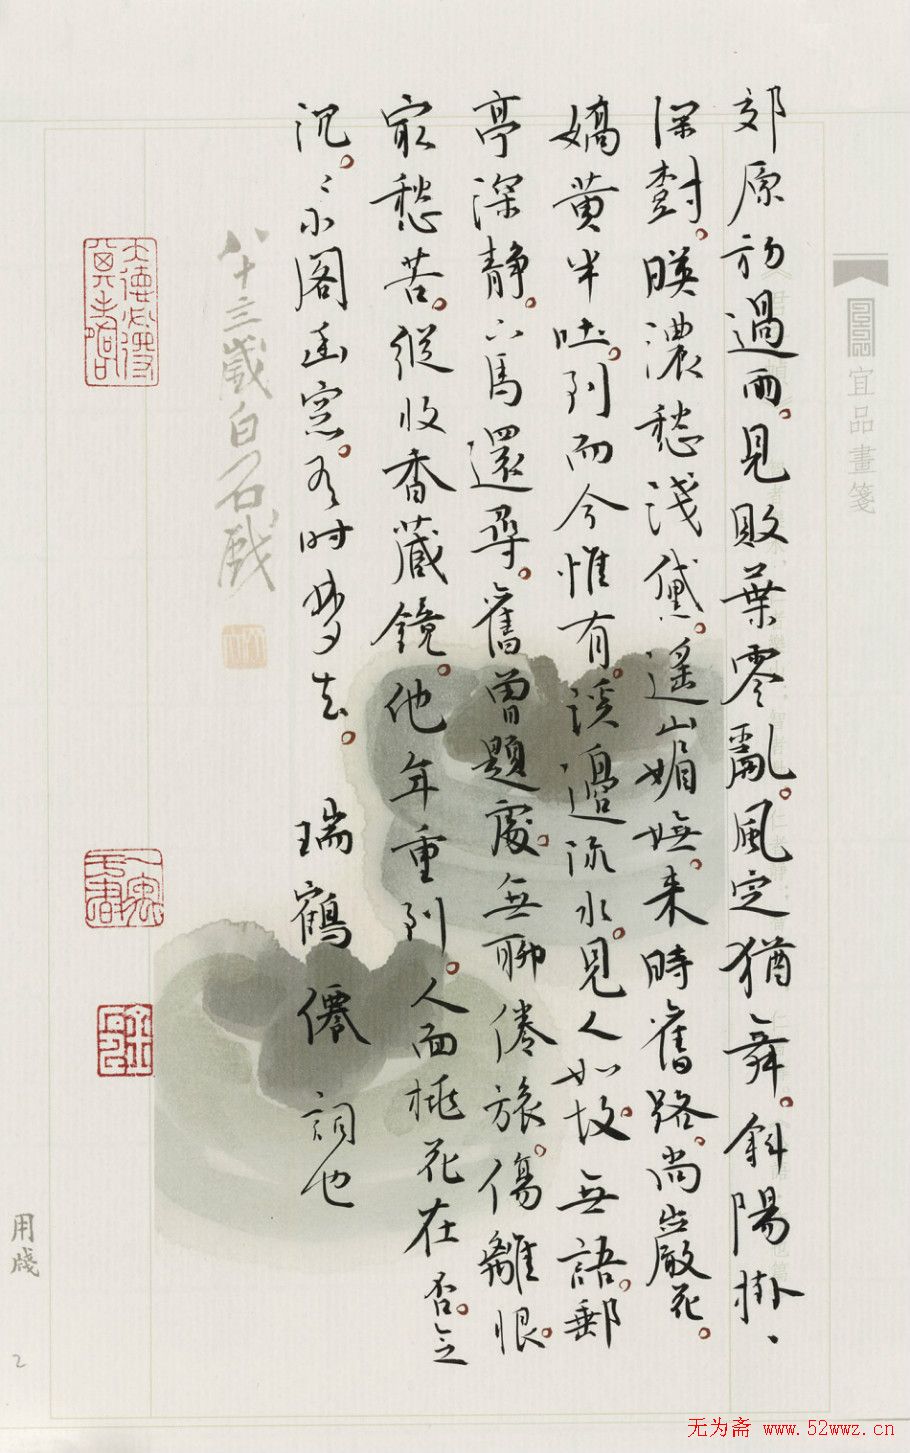 宜品畫箋
郊原初過雨。見敗葉零亂。風定猶舞。斜陽掛、
深樹。暎濃愁淺黛。遙山媚嫵。来時舊路。尚巖花。
嬌黄半吐。到而今惟有。溪邊流水。見人如故。無語。郵
亭深静。下馬還尋。舊曾題處。無聊倦旅。傷離恨。
寂愁苦。縱收香藏鏡。他年重到。人面桃花在否。念
沉。〻小閣幽窓。有时梦去。 瑞鶴僊 詞也
八十三歲白石戲
用牋
2
无为斋 www.52wwz.cn